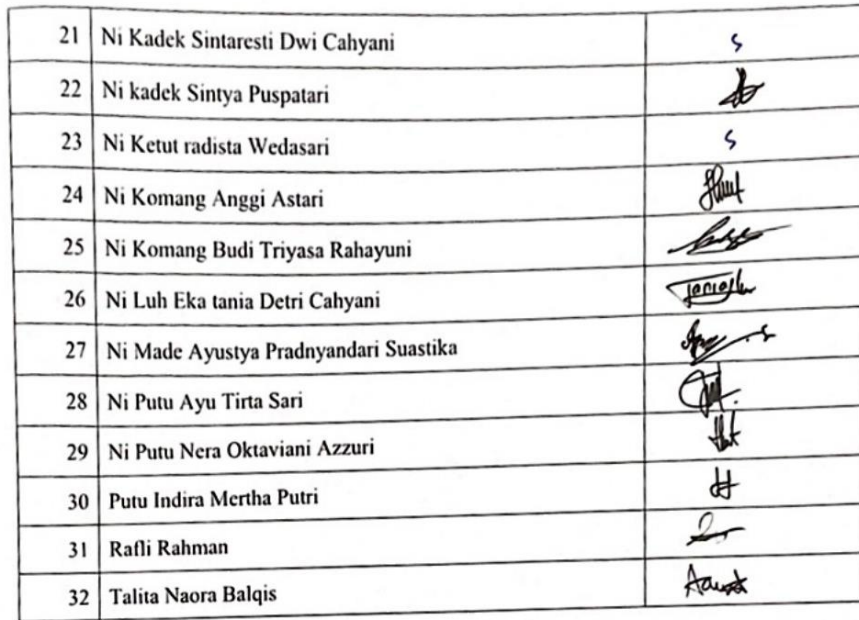 21 Ni Kadek Sintaresti Dwi Cahyani s
22 Ni kadek Sintya Puspatari
23 Ni Ketut radista Wedasari s
24 Ni Komang Anggi Astari
25 Ni Komang Budi Triyasa Rahayuni
26 Ni Luh Eka tania Detri Cahyani
27 Ni Made Ayustya Pradnyandari Suastika
28 Ni Putu Ayu Tirta Sari
29 Ni Putu Nera Oktaviani Azzuri
30 Putu Indira Mertha Putri
31 Rafli Rahman
32 Talita Naora Balqis